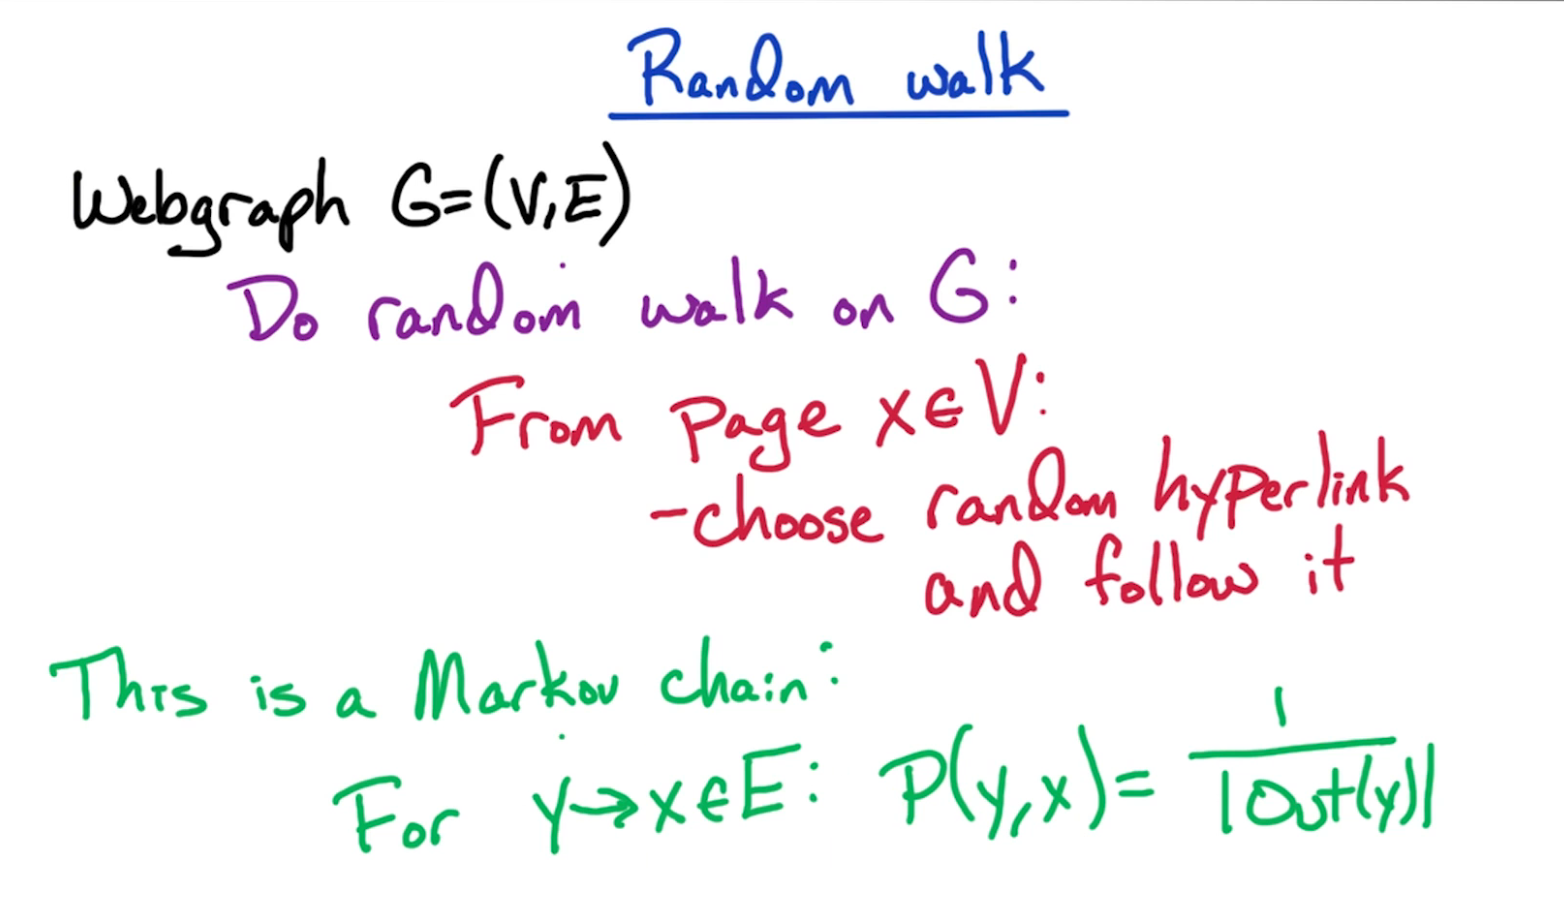 Random walk
Webgraph G=(V,E)
Do random walk on G:
From page x∈V:
-choose random hyperlink
and follow it
This is a Markov chain:
For y→x∈E: P(y,x)= 1/|Out(y)|